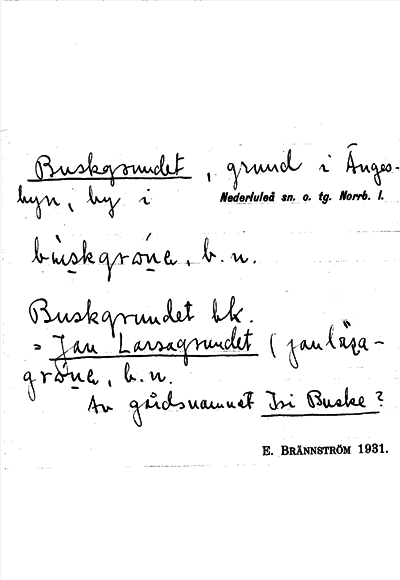 Buskgrundet, grund i Änges-
byn, by i Nederluleå sn. o. tg. Norrb. l.
bu̇skgrớnα, b. n.
Buskgrundet bk.
= Jan Larsagrundet (janlása-
grớnα, b. n.
Av gårdsnamnet Isi Buske?
E. BRÄNNSTRÖM 1931.